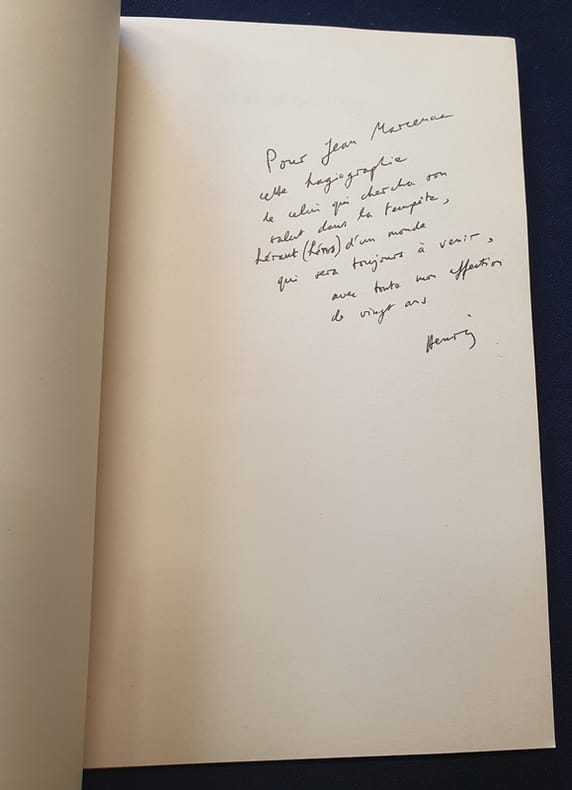 Pour Jean Marcenac
cette hagiographie
de celui qui chercha son
salut dans la tempête,
hérent (héros) d'un monde
qui sera toujours à venir,
avec toute mon affection
de vingt ans
Henri